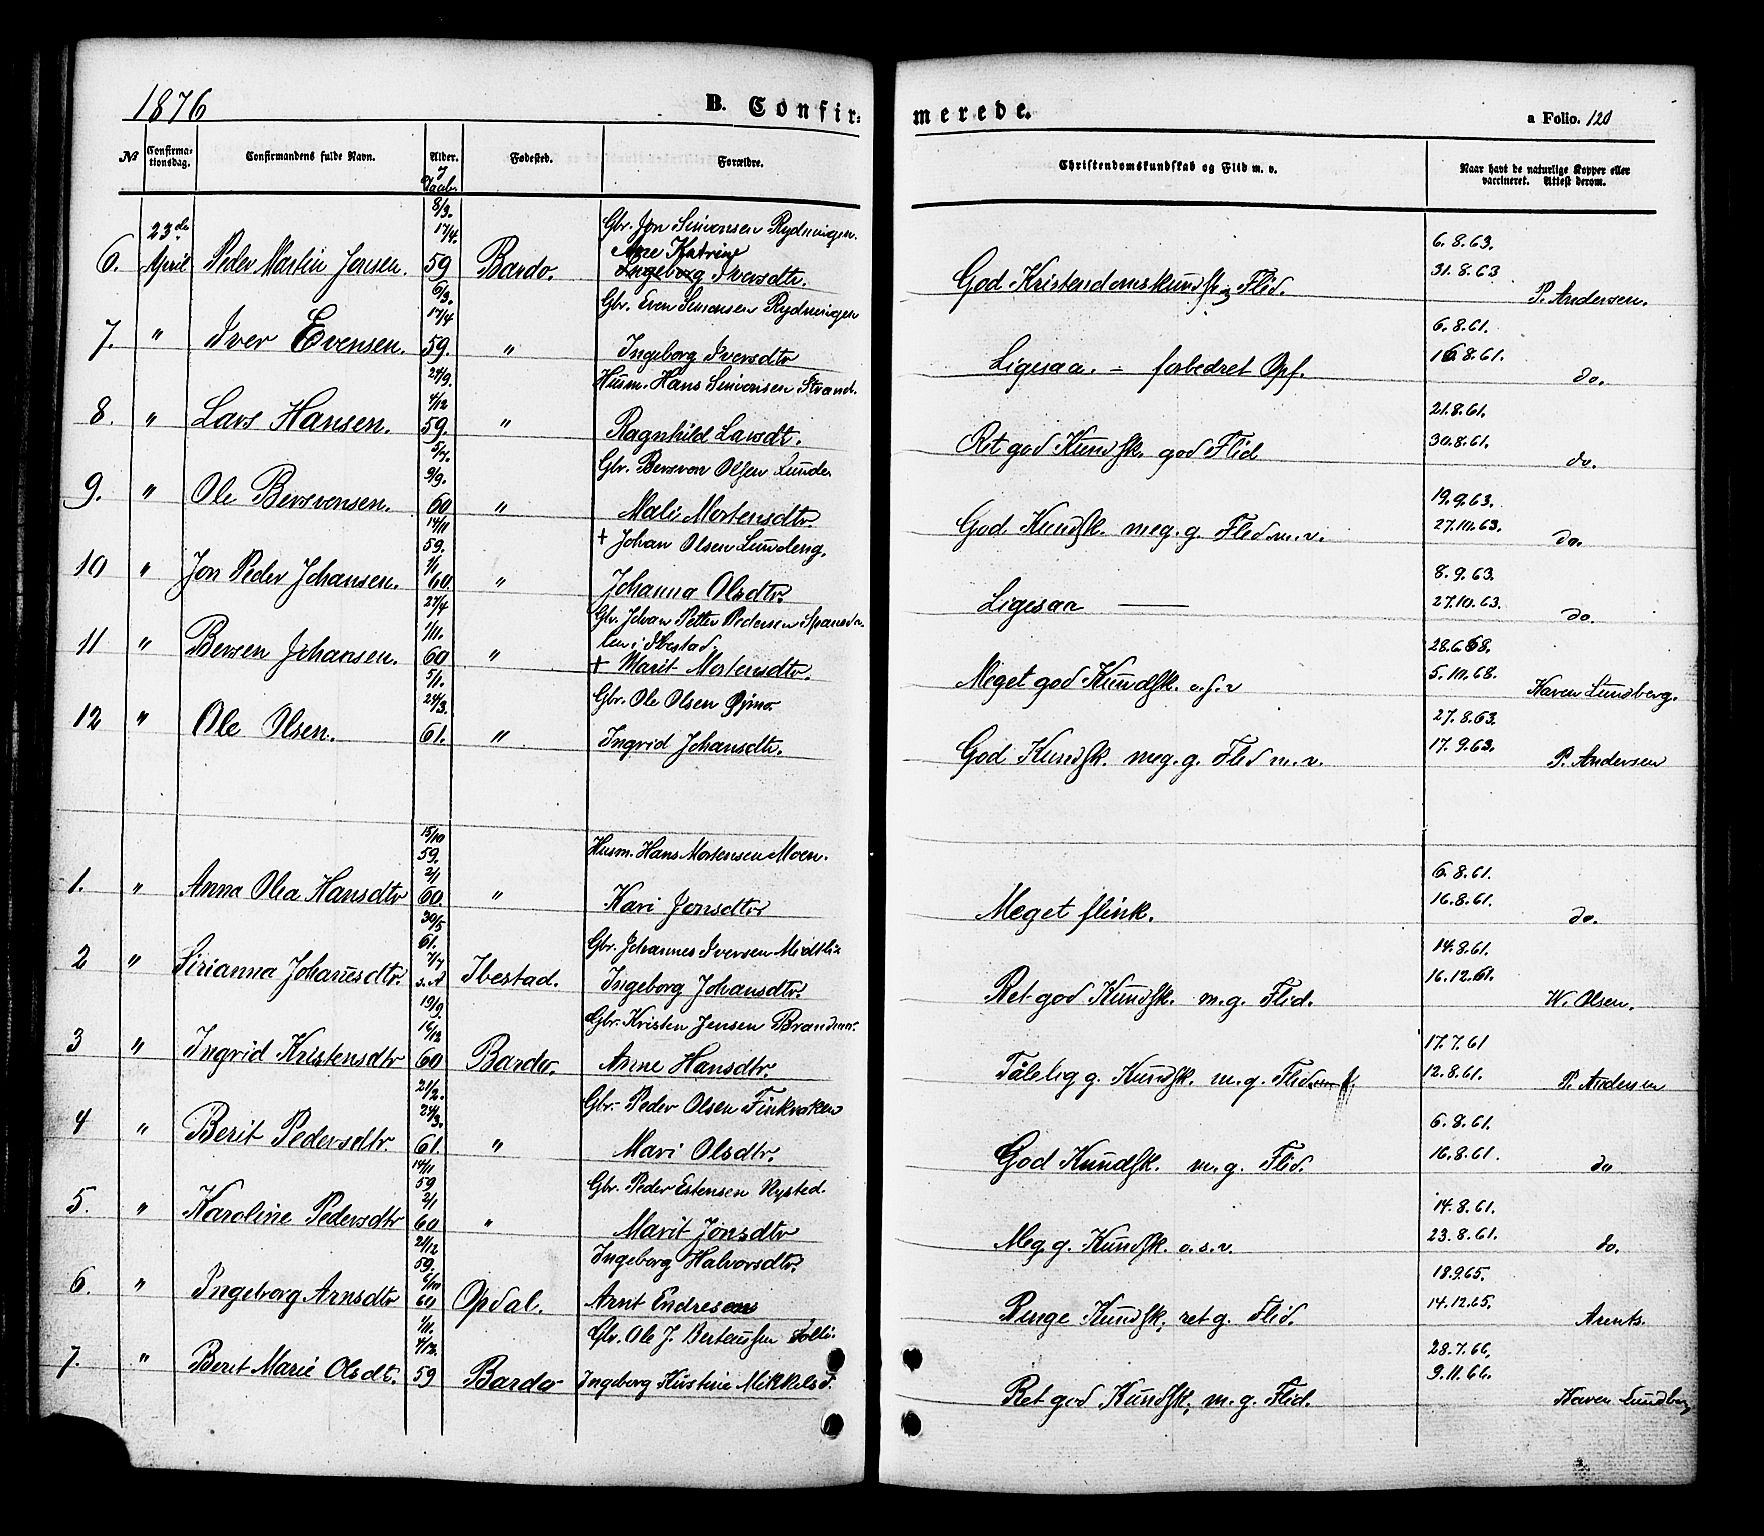 1876
B. Confirmerede.
a Folio. 120
No Confirmationsdag. Confirmandens fulde Navn. Alder. Fødested. Forældre. Christendomskundskab og Flid m. v. Naar havt de naturlige Kopper eller vaccineret. Attest derom.
8/3.
23de 17/4. Gbr. Jon Simonsen Rydningen. 6. 8. 63.
Ane Katrine
6. April Peder Martin Jonsen. 59 Bardo. Ingeborg Iversdtr. God Kristendomskundsk. og Flid. 31. 8. 63 P. Andersen.
6/3. Gbr. Even Simonsen Rydningen
17/4 6. 8. 61.
7. " Iver Evensen. 59. " Ingeborg Iversdtr Ligesaa. - forbedret Opf. 16 8. 61. do.
24/9. Husm. Hans Simonsen Strand.
4/12 21. 8. 61.
8. " Lars Hansen. 59. " Ragnhild Larsdt. Ret god Kundsk. god Flid 30. 8. 61. do.
5/7. Gbr. Bersvon Olsen Lunde.
9/9. 19. 9. 63.
9. " Ole Bersvensen. 60 " Mali Mortensdtr God Kundsk. meg. g. Flid m. v. 27. 10. 63. do.
14/11 † Johan Olsen Lundeng.
59.
1/1 8. 9. 63.
10 " Jon Peder Johansen. 60 " Johanna Olsdtr. Ligesaa 27. 10. 63. do.
27/4 Gbr. Johan Petter Pedersen Spansda-
1/11. len i Ibestad. 28. 6. 68.
11 " Bersen Johansen. 60 " † Marit Mortensdtr. Meget god Kundsk. o. s. v 5. 10. 68. Karen Lundberg.
5/1. Gbr. Ole Olsen Øjmo
24/3. 27. 8. 63.
12 " Ole Olsen. 61. " Ingrid Johansdtr. God Kundsk. meg. g. Flid m. v. 17. 9. 63. P. Andersen
15/10
59. Husm. Hans Mortensen Moen.
2/1 6. 8. 61.
1. " Anna Olea Hansdtr 60. " Kari Jonsdtr Meget flink. 16. 8. 61. do.
30/5
61. Gbr. Johannes Iversen Midtli
7/7 14. 8. 61.
2 " Sirianna Johanesdtr. s. A Ibestad. Ingeborg Johansdtr. Ret god Kundsk. m. g. Flid. 16. 12. 61. W. Olsen.
19/9 Gbr. Kristen Jensen Brandmo.
16/12 17. 7. 61
3 " Ingrid Kristensdtr 60 Bardo. Anne Hansdtr. Tålelig g. Kundsk. m. g. Flid 12. 8. 61. P. Andersen
21/2. Gbr. Peder Olsen Finkroken
24/3. 6. 8. 61.
4 " Berit Pedersdtr. 61. " Mari Olsdtr. God Kundsk. m. g. Flid. 16. 8. 61. do
14/11
59 Gbr. Peder Estensen Nysted.
2/1 14. 8. 61.
5. " Karoline Pedersdtr 60 " Marit Jonsdtr Meg. g. Kundsk. o. s. v. 23. 8. 61. do.
21/12
59. Ingeborg Halvorsdtr.
6/10 18. 9. 65.
6. " Ingeborg Arnsdtr 60 Opdal. Arnt Endresens Ringe Kundsk, ret g. Flid. 14. 12. 65. Arents.
1/11. Gbr. Ole J. Berteussen
4/12. 28. 7. 66,
7. " Berit Marie Olsdt. 59 Bardo Ingeborg Kristine Mikkelsd. Ret god Kundsk, m. g. Flid. 9. 11. 66. Karen Lundberg